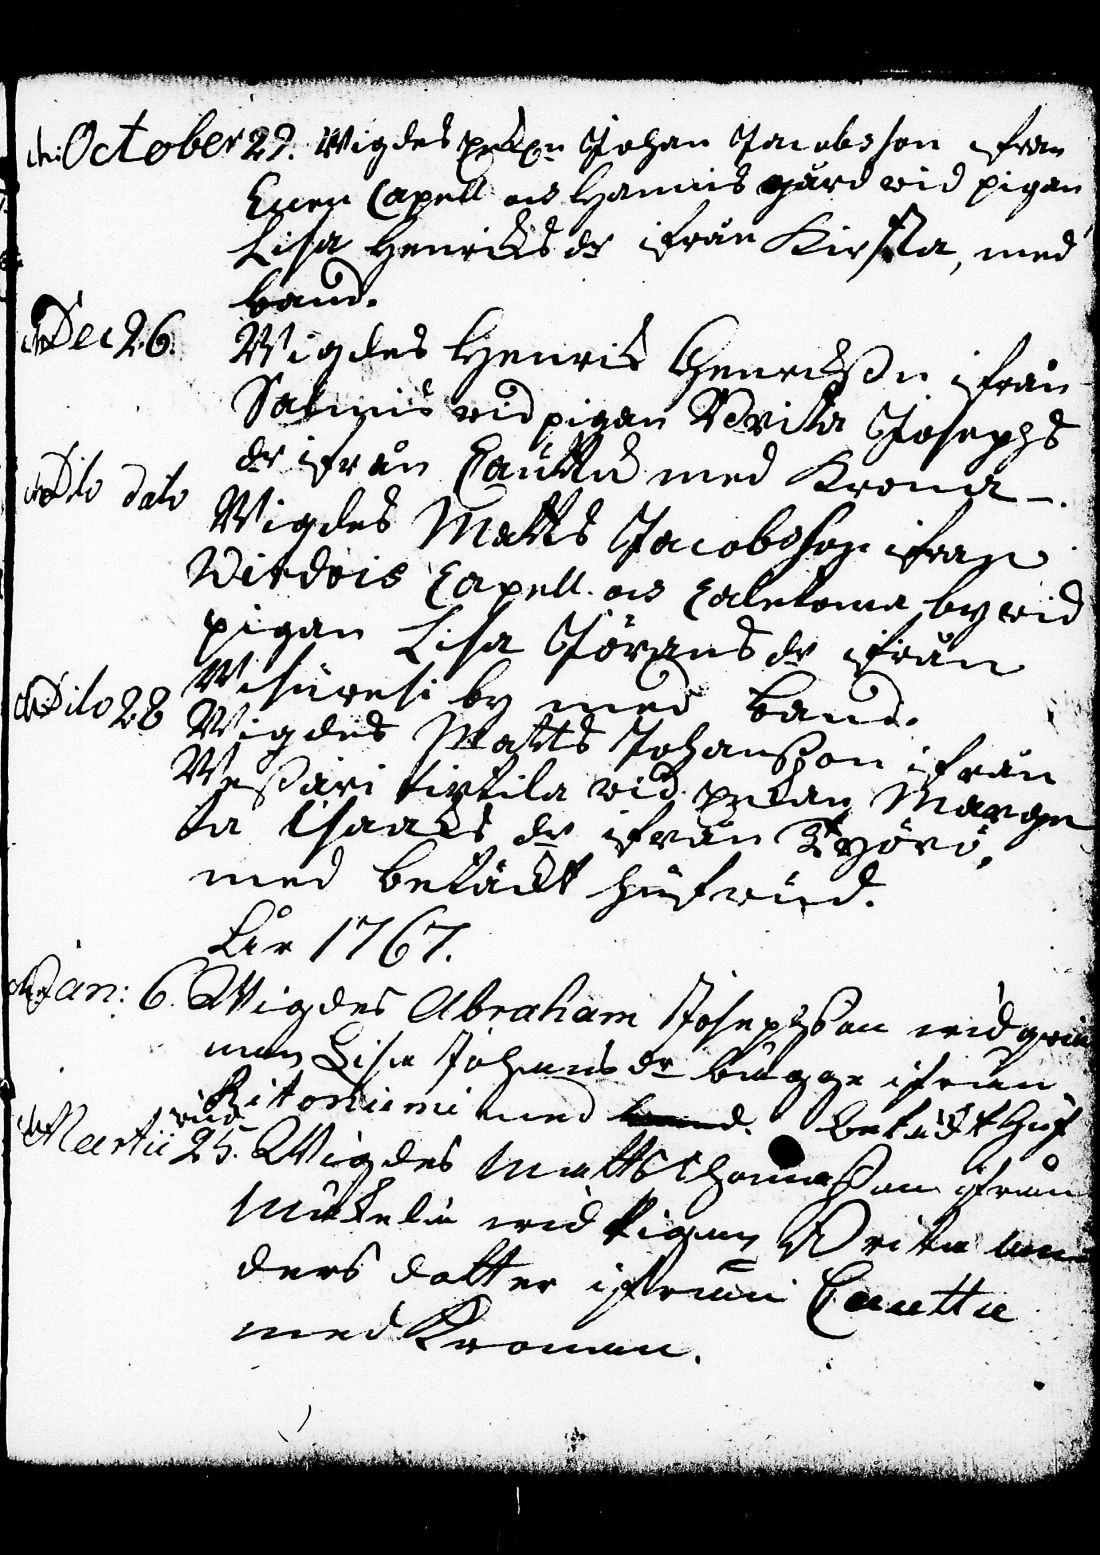 d: October 29. Wigdes Johan Jacobsson ifrån
Capell och Hannus gård wid pigan
Lisa Henrichs dr ifrån Kirsta, med
band.
d: Dec 26. Wigdes Henric Henrichsson ifrån
Salmis wid pigan Brita Josephs
dr ifrån Cauttu med Krona.
d: Dito dato Wigdes Matts Jacobsson ifrån
Virdois Capell och by wid
pigan Lisa Jörans dr ifrån
by med band.
d: Dito 28 Wigdes Matts Johansson ifrån
wid pekan Margre
ta Isaacs dr ifrån
med betäckt hufwud.
Åhr 1767.
d: Jan: 6. Wigdes Abraham Josephsson wid qwin
man Lisa Johans dr Bugge ifrån
Ritoniemi med band. betäckt huf
wud
d: Martii 25. Wigdes Matts Thomasson ifrån
wid Pigan Brita An
ders dotter ifrån Cauttu
med Kronan.